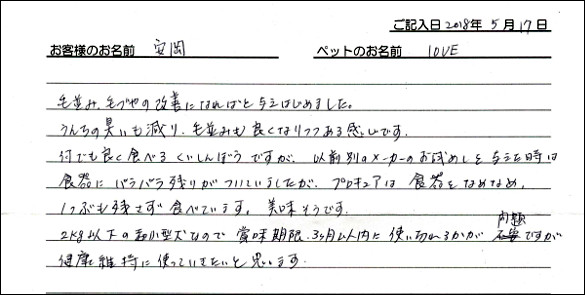 ご記入日 2018年 5月 17日
お客様のお名前 安岡 ペットのお名前 LOVE
毛並み、毛づやの改善になればと与えはじめました。
うんちの臭いも減り、毛並みも良くなりつつある感じです。
何でも良く食べるくいしんぼうですが、以前別のメーカーのお試めしを与えた時は
食器にバラバラ残りがついていましたが、プロキュアは食器をなめなめ、
1つぶも残さず食べています。美味そうです。
2kg以下の超小型犬なので賞味期限、3ヶ月以内に使い切れるかが問題ですが
健康維持に使っていきたいと思います。